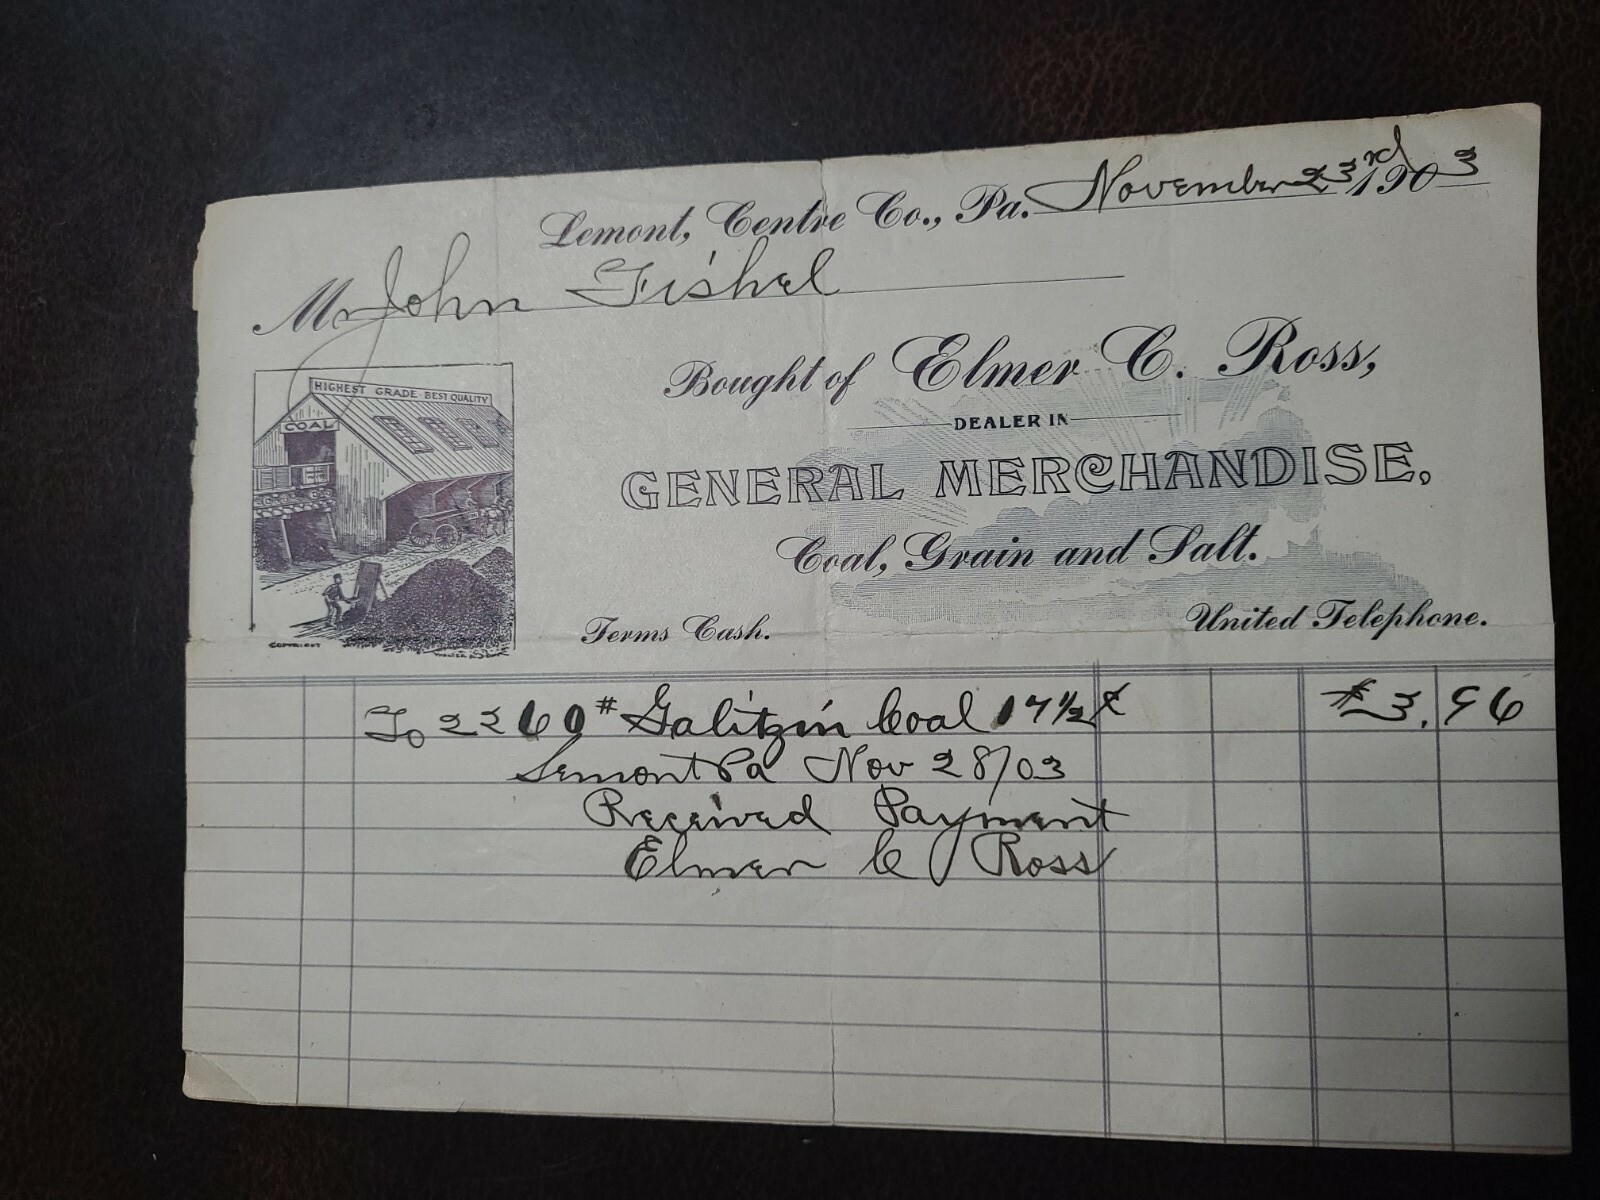 Lemont, Centre Co., Pa. November 23rd 1903
Mr John Fishel
HIGHEST GRADE BEST QUALITY
COAL
COPYRIGHT
Bought of Elmer C. Ross,
DEALER IN
GENERAL MERCHANDISE,
Coal, Grain and Salt.
Terms Cash.
United Telephone.
To 2260# Galitzin Coal 17½ ¢ $3.96
Lemont Pa Nov 28/03
Received Payment
Elmer C Ross